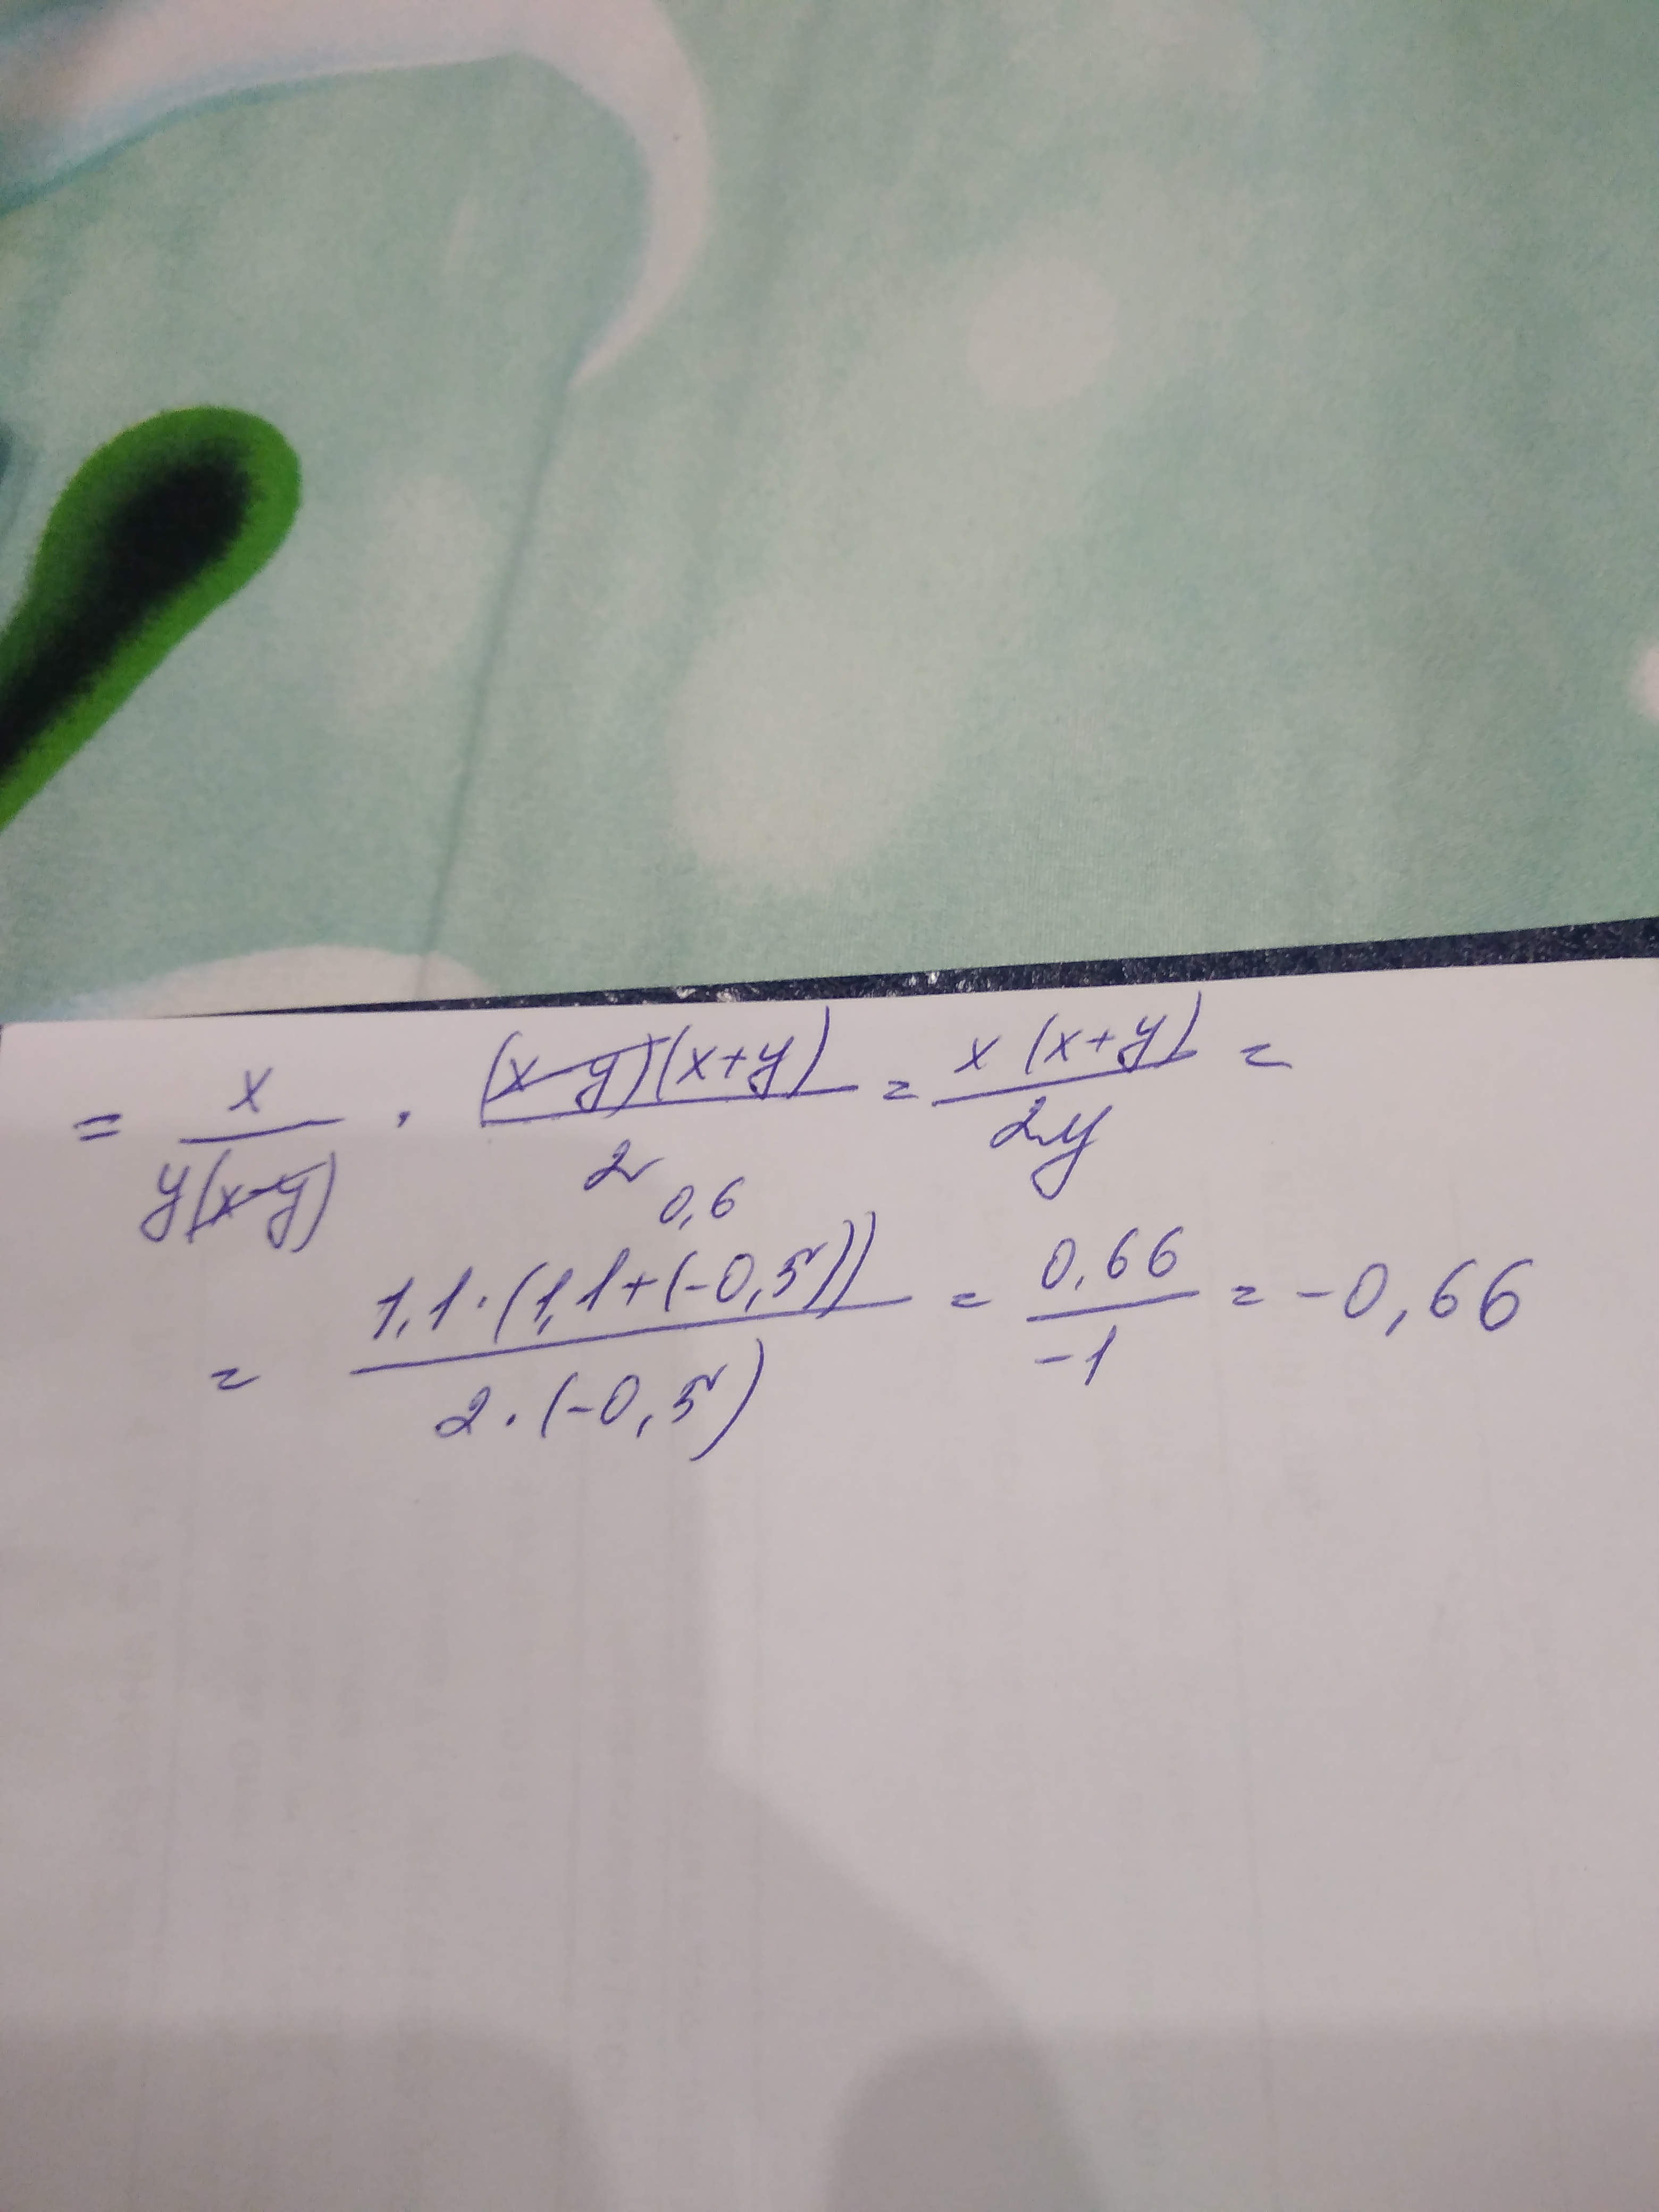 = x / y(x-y) · (x-y)(x+y) / 2 = x(x+y) / 2y =
0,6
= 1,1·(1,1+(-0,5)) / 2·(-0,5) = 0,66 / -1 = -0,66